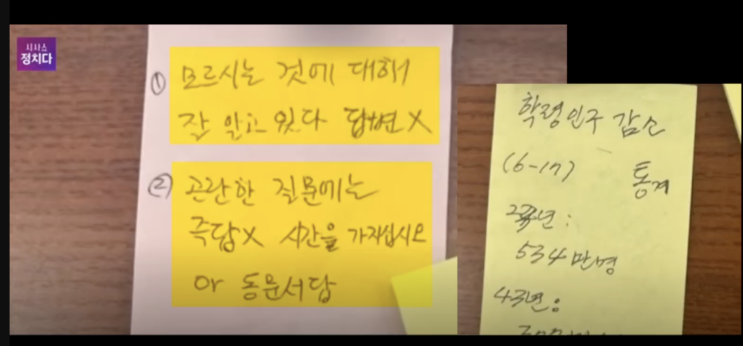 시사쇼
정치다
① 모르시는 것에 대해
잘 알고 있다 답변 X
② 곤란한 질문에는
즉답X 시간을 가지십시오
or 동문서답
학령인구 감소
(6-17) 통계
년:
534만명
43년: